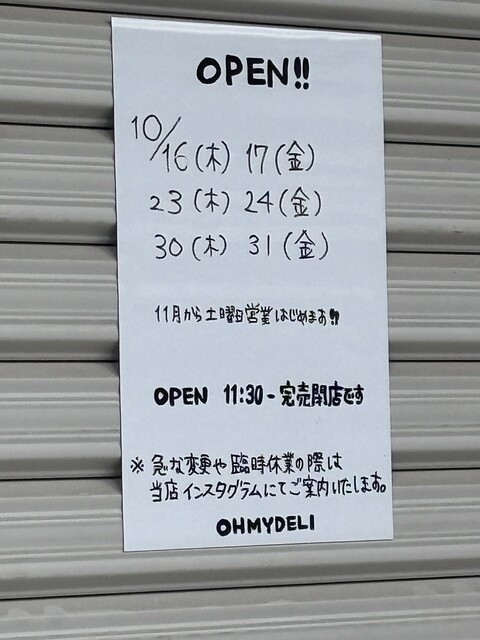 OPEN!!
10/16(木) 17(金)
23(木) 24(金)
30(木) 31(金)
11月から土曜日営業はじめます!!
OPEN 11:30-完売閉店です
※ 急な変更や臨時休業の際は
当店インスタグラムにてご案内いたします。
OHMYDELI